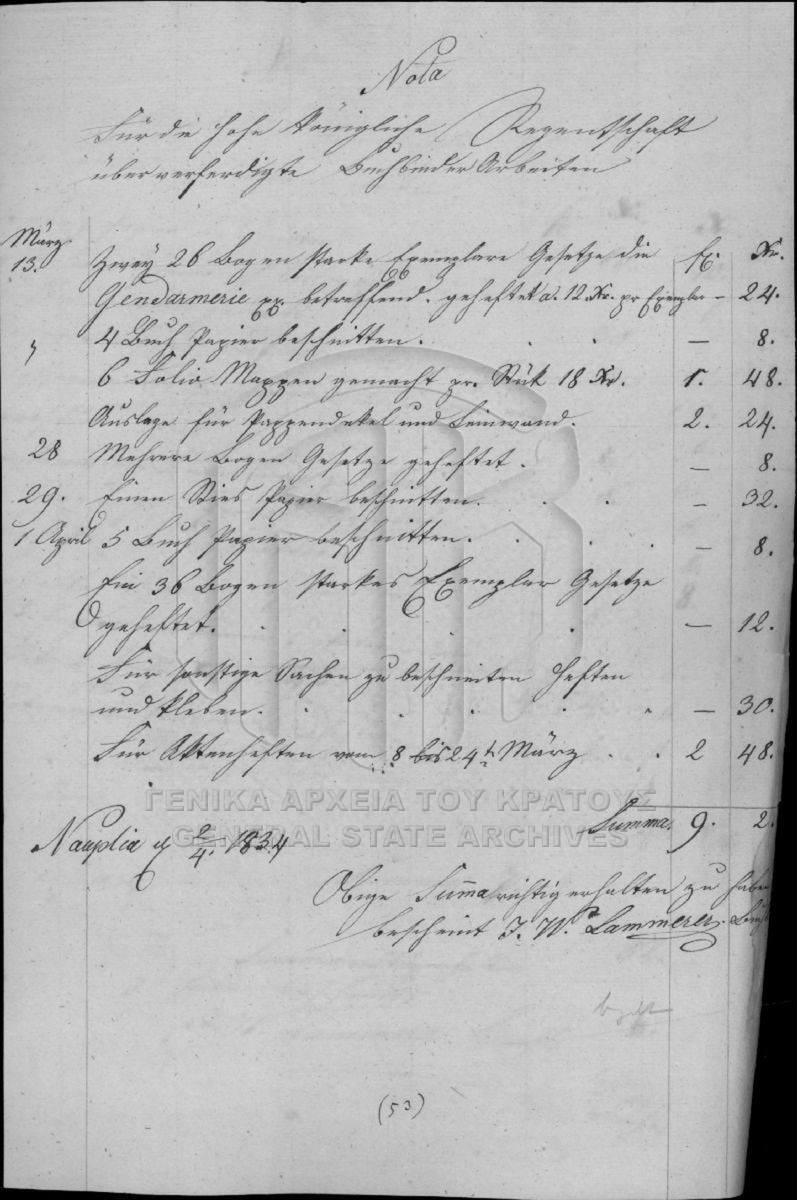 Nota
Für die hohe Königliche Regentschaft
über verferdigte Buchbinder Arbeiten
März
13. Zwey 26 Bogen starke Exemplare Gesetze die fl. Xr.
Gendarmerie pp. betreffend. geheftet a. 12 Xr. pr Exemplar — 24.
" 4 Buch Papier beschnitten. — 8.
6 Folio Mappen gemacht pr. Stük 18 Xr. 1. 48.
Auslage für Pappendekel und Leinwand. 2. 24.
28 Mehrere Bogen Gesetze geheftet. — 8.
29. Einen Ries Papier beschnitten. — 32.
1 April 5 Buch Papier beschnitten. — 8.
Ein 36 Bogen starkes Exemplar Gesetze
geheftet. — 12.
Für sonstige Sachen zu beschneiten heften
und kleben. — 30.
Für Aktenheften vom 8 bis 24t März 2 48.
ΓΕΝΙΚΑ ΑΡΧΕΙΑ ΤΟΥ ΚΡΑΤΟΥΣ
GENERAL STATE ARCHIVES
Summa. 9. 2.
Nauplia 2/4. 1834
Obige Suma richtig erhalten zu haben
bescheint J. W. Lammerer.
(53)